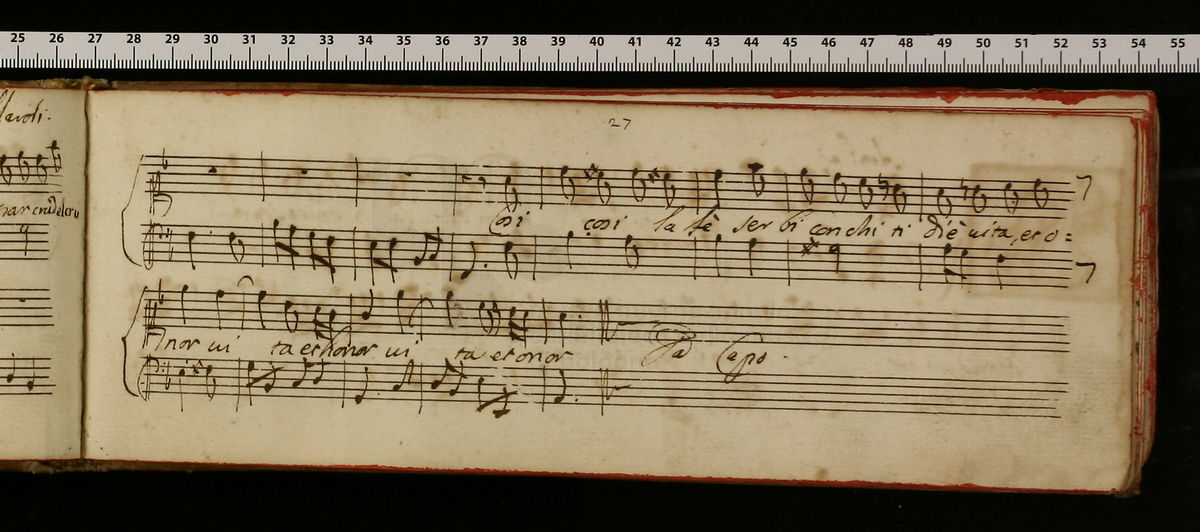 25 26 27 28 29 30 31 32 33 34 35 36 37 38 39 40 41 42 43 44 45 46 47 48 49 50 51 52 53 54 55
27
Così così la fè serbi con chi ti diè vita, et o=
nor vi ta et honor vi ta et onor Da Capo.